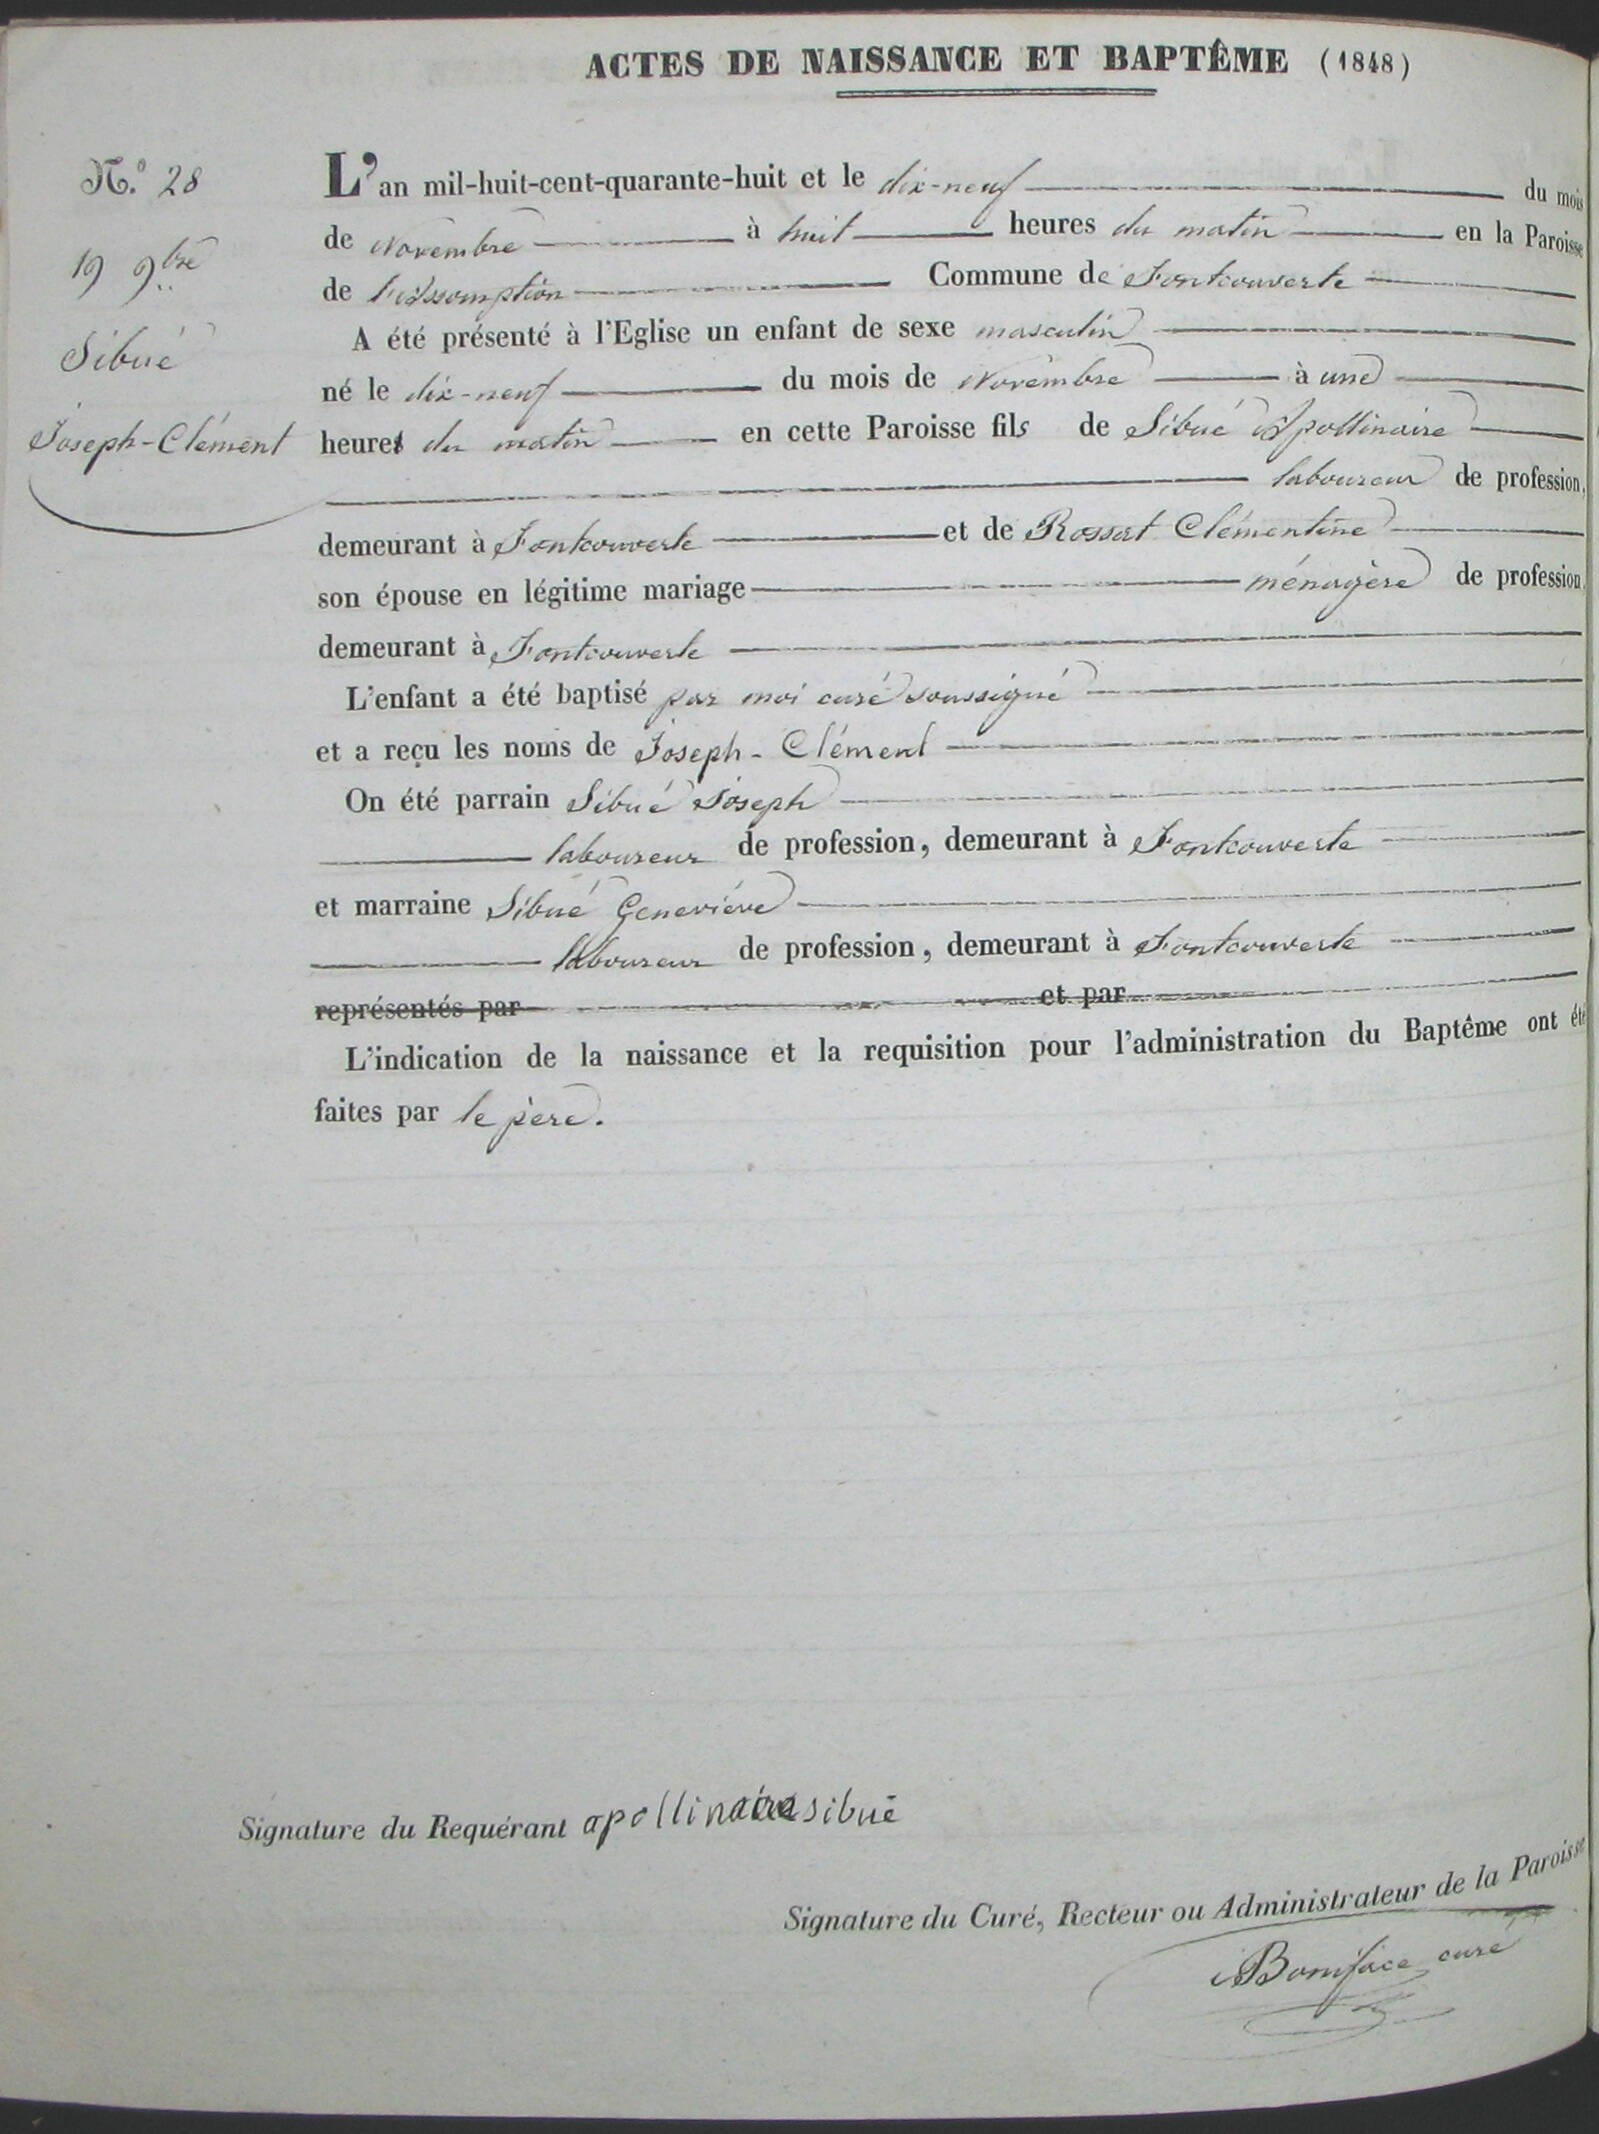 ACTES DE NAISSANCE ET BAPTÊME (1848)
N.º 28
19 9bre
Sibué
Joseph-Clément
L'an mil-huit-cent-quarante-huit et le dix-neuf du mois
de Novembre à huit heures du matin en la Paroisse
de l'assomption Commune de Fontcouverte
A été présenté à l'Eglise un enfant de sexe masculin
né le dix-neuf du mois de Novembre à une
heures du matin en cette Paroisse fils de Sibué Apollinaire
laboureur de profession,
demeurant à Fontcouverte et de Rossat Clémentine
son épouse en légitime mariage ménagère de profession,
demeurant à Fontcouverte
L'enfant a été baptisé par moi curé soussigné
et a reçu les noms de Joseph-Clément
On été parrain Sibué Joseph
laboureur de profession, demeurant à Fontcouverte
et marraine Sibué Geneviève
laboureur de profession, demeurant à Fontcouverte
représentés par et par
L'indication de la naissance et la requisition pour l'administration du Baptême ont été
faites par le père.
Signature du Requérant apollinaire sibué
Signature du Curé, Recteur ou Administrateur de la Paroisse
Boniface curé